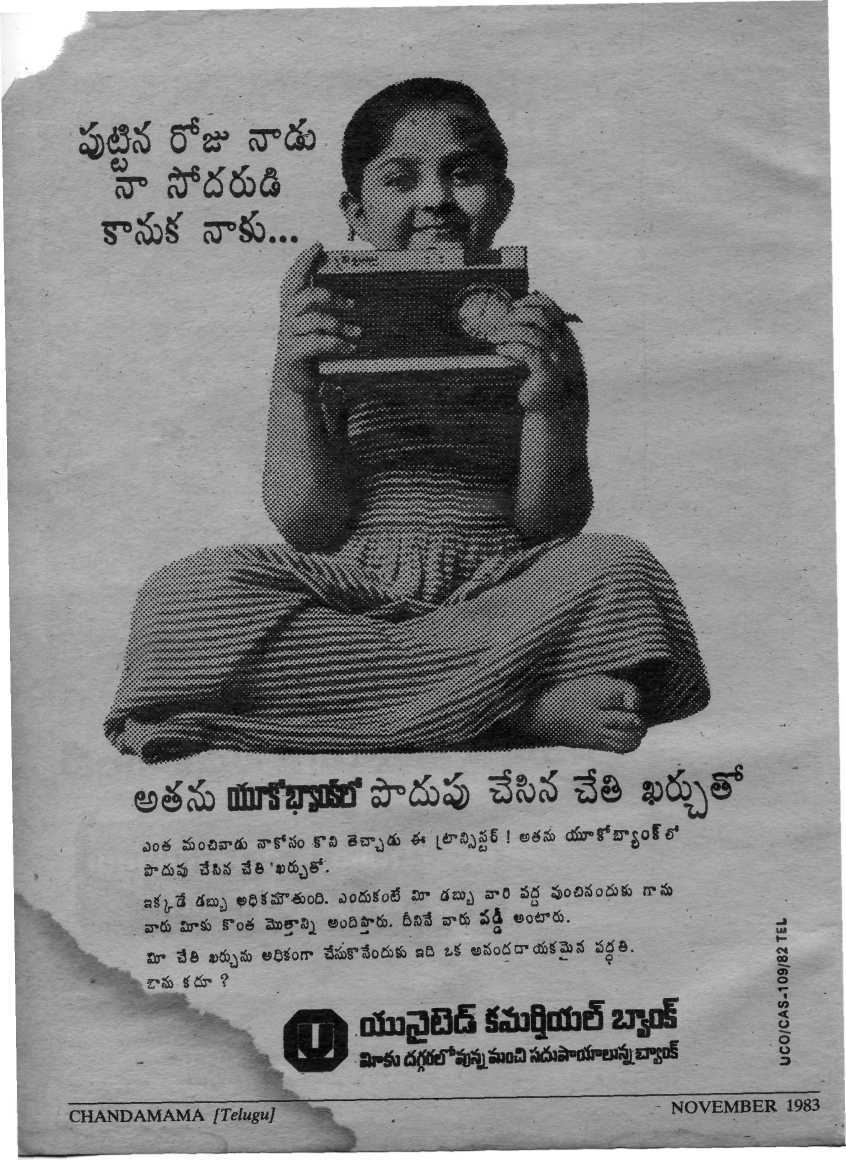 పుట్టిన రోజు నాడు
నా సోదరుడి
కానుక నాకు...
అతను యూకోబ్యాంక్‌లో పొదుపు చేసిన చేతి ఖర్చుతో
ఎంత మంచివాడు నాకోసం కొని తెచ్చాడు ఈ ట్రాన్సిస్టర్ ! అతను యూకోబ్యాంక్ లో
పొదుపు చేసిన చేతి ఖర్చుతో.
ఇక్కడే డబ్బు అధికమౌతుంది. ఎందుకంటే మీ డబ్బు వారి వద్ద వుంచినందుకు గాను
వారు మీకు కొంత మొత్తాన్ని అందిస్తారు. దీనినే వారు వడ్డీ అంటారు.
మీ చేతి ఖర్చును అధికంగా చేసుకొనేందుకు ఇది ఒక అనందదాయకమైన పద్ధతి.
ఔను కదూ ?
యునైటెడ్ కమర్షియల్ బ్యాంక్
మీకు దగ్గరలోవున్న మంచి సదుపాయాలున్న బ్యాంక్
UCO/CAS-109/82 TEL
CHANDAMAMA [Telugu]
NOVEMBER 1983